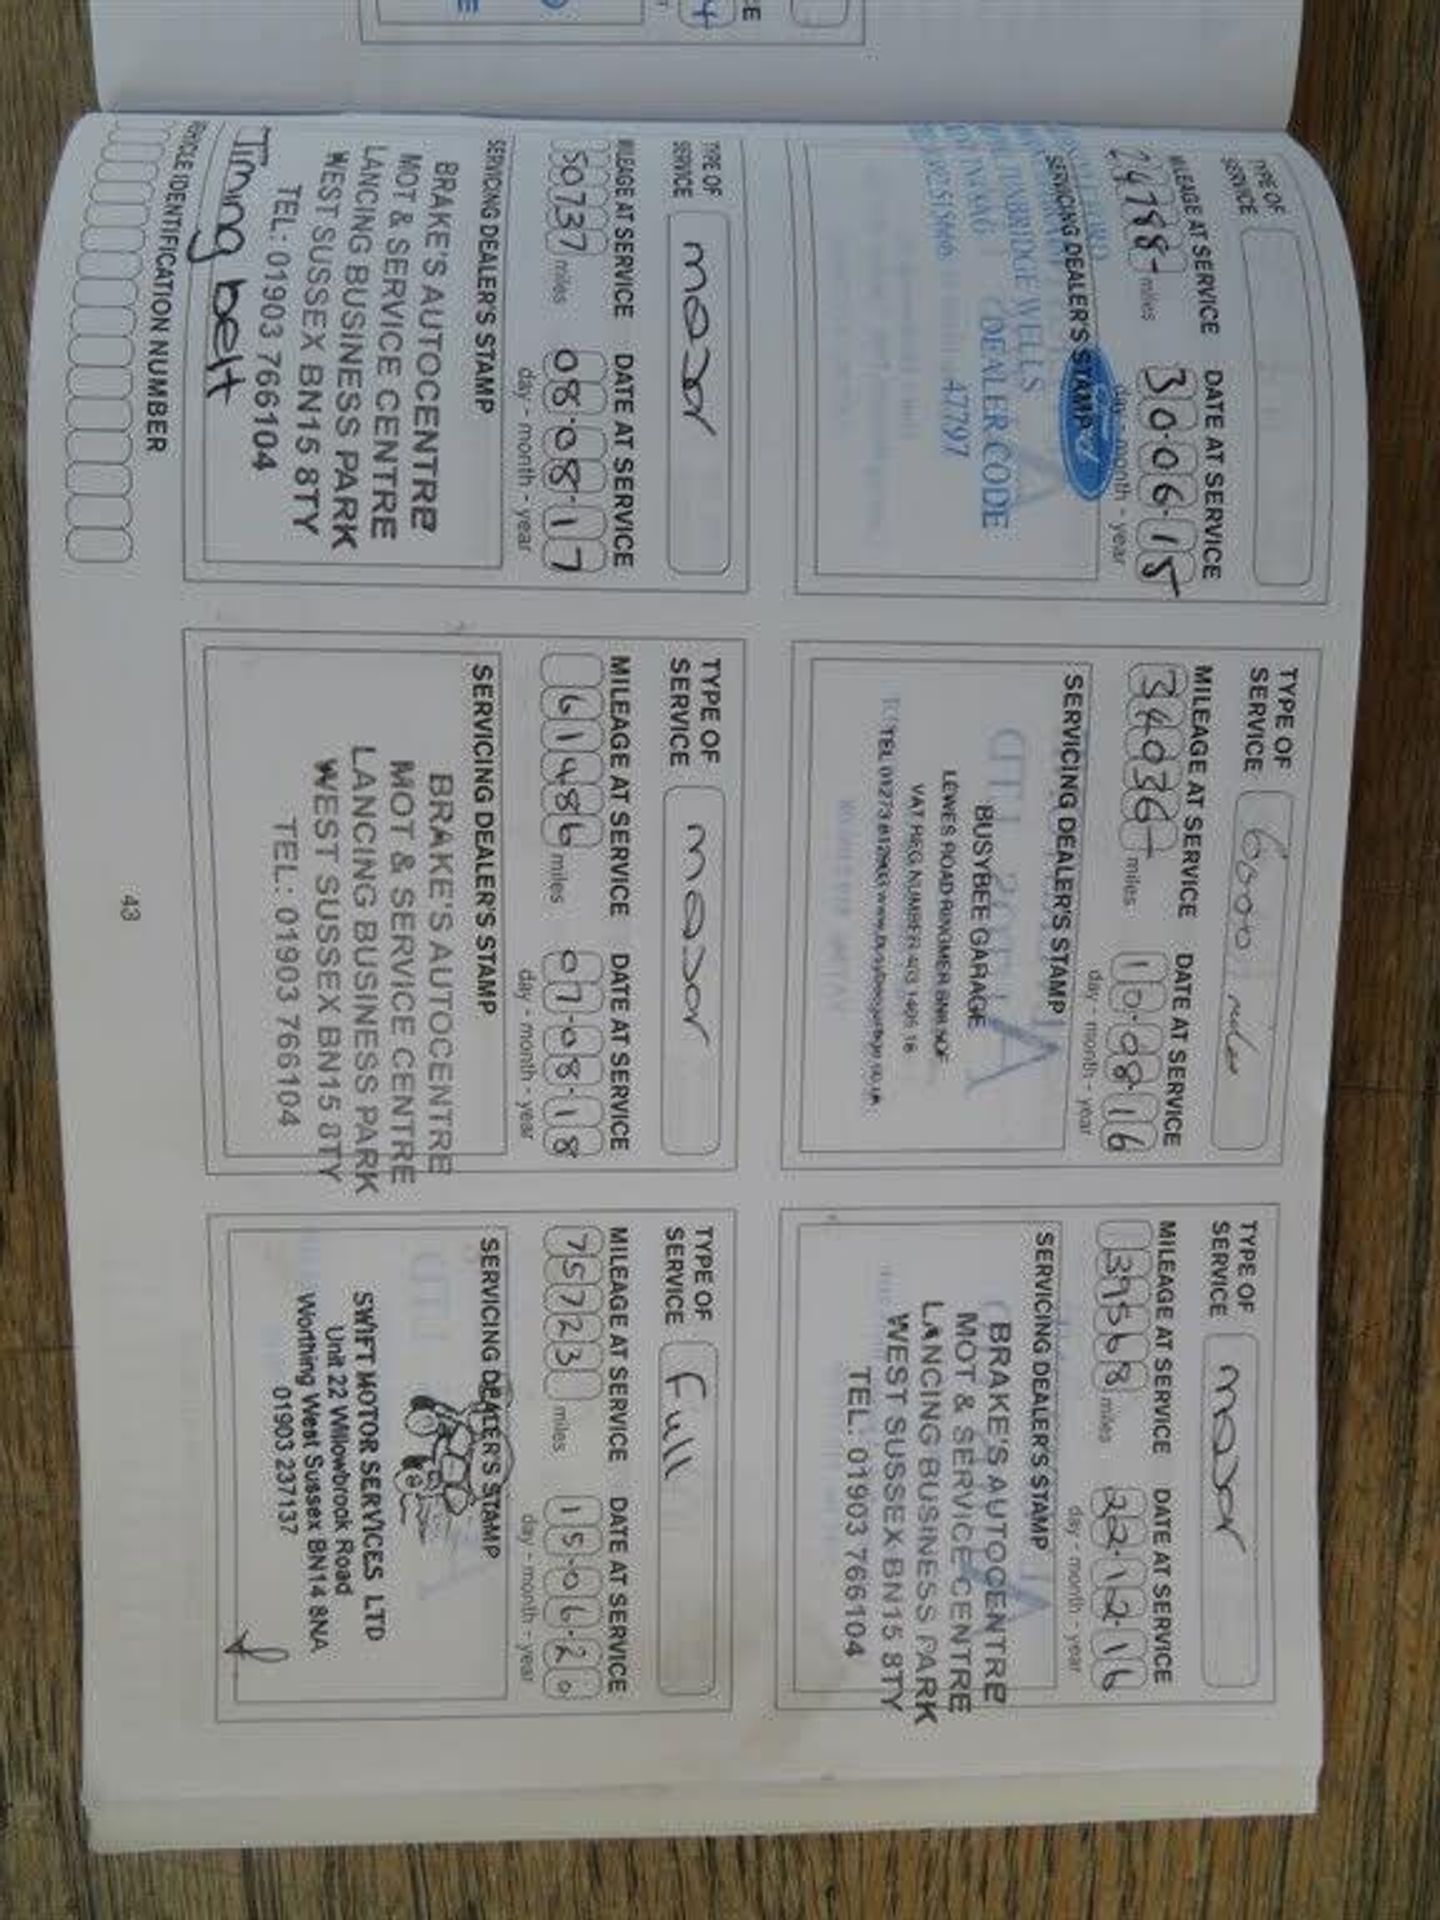 TYPE OF
SERVICE
MILEAGE AT SERVICE DATE AT SERVICE
24788 miles 30·06·15
day - month - year
SERVICING DEALER'S STAMP
TUNBRIDGE WELLS
DEALER CODE
47797
TYPE OF
SERVICE 60000 miles
MILEAGE AT SERVICE DATE AT SERVICE
34036 miles 10·08·16
day - month - year
SERVICING DEALER'S STAMP
BUSYBEE GARAGE
LEWES ROAD RINGMER
VAT REG NUMBER
TEL
TYPE OF
SERVICE major
MILEAGE AT SERVICE DATE AT SERVICE
39568 miles 22·12·16
day - month - year
SERVICING DEALER'S STAMP
BRAKE'S AUTOCENTRE
MOT & SERVICE CENTRE
LANCING BUSINESS PARK
WEST SUSSEX BN15 8TY
TEL: 01903 766104
TYPE OF
SERVICE major
MILEAGE AT SERVICE DATE AT SERVICE
50737 miles 08·08·17
day - month - year
SERVICING DEALER'S STAMP
BRAKE'S AUTOCENTRE
MOT & SERVICE CENTRE
LANCING BUSINESS PARK
WEST SUSSEX BN15 8TY
TEL: 01903 766104
Timing belt
TYPE OF
SERVICE major
MILEAGE AT SERVICE DATE AT SERVICE
61486 miles 07·08·18
day - month - year
SERVICING DEALER'S STAMP
BRAKE'S AUTOCENTRE
MOT & SERVICE CENTRE
LANCING BUSINESS PARK
WEST SUSSEX BN15 8TY
TEL: 01903 766104
TYPE OF
SERVICE Full
MILEAGE AT SERVICE DATE AT SERVICE
75723 miles 15·06·20
day - month - year
SERVICING DEALER'S STAMP
SWIFT MOTOR SERVICES LTD
Unit 22 Willowbrook Road
Worthing West Sussex BN14 8NA
01903 237137
VEHICLE IDENTIFICATION NUMBER
43